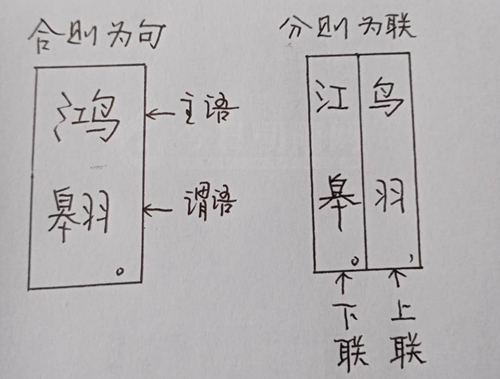 合则为句
鸿 ← 主语
翶 ← 谓语
。
分则为联
鸟羽，
江皋。
↑上联
↑下联